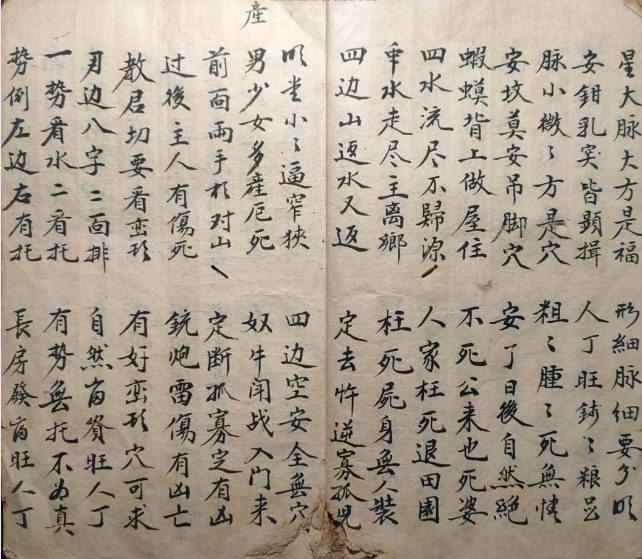 星大脉大方是福 形細脉細要分明
安鉗乳突皆顕揖 人丁旺錢〻粮足
脉小微〻方是穴 粗〻腫〻死無情
安坟莫安吊脚穴 安了日後自然絕
蝦蟆背上做屋住 不死公来也死婆
四水流尽不歸源 人家枉死退田園
水走尽主離鄉 枉死屍身無人裝
四边山返水又返 定去忤逆寡孤児
產
明堂小〻逼窄狹 四边空安全無穴
男少女多產厄死 奴牛闻战入門来
前面兩手相对山 定断孤寡定有凶
过後主人有傷死 銃炮雷傷有凶亡
教君切要看峦形 有好峦形穴可求
边八字二面排 自然富資旺人丁
一势看水二看托 有势無托不为真
势倒左边右有托 長房發富旺人丁